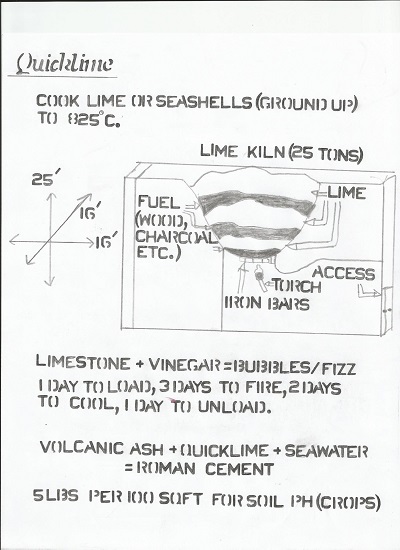 Quicklime
COOK LIME OR SEASHELLS (GROUND UP)
TO 825°C.
LIME KILN (25 TONS)
25'
16'
16'
FUEL
(WOOD,
CHARCOAL
ETC.)
LIME
ACCESS
TORCH
IRON BARS
LIMESTONE + VINEGAR = BUBBLES/FIZZ
1 DAY TO LOAD, 3 DAYS TO FIRE, 2 DAYS
TO COOL, 1 DAY TO UNLOAD.
VOLCANIC ASH + QUICKLIME + SEAWATER
= ROMAN CEMENT
5 LBS PER 100 SQFT FOR SOIL PH (CROPS)